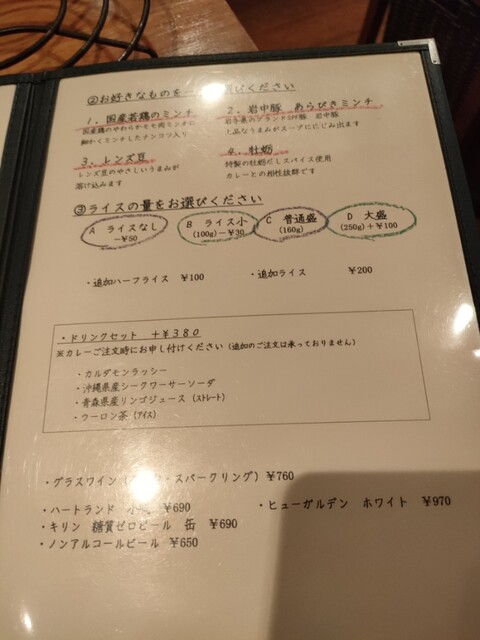 ②お好きなものを一 びください
1. 国産若鶏のミンチ
国産鶏のやわらかモモ肉ミンチに
細かくミンチしたナンコツ入り
2. 岩中豚 あらびきミンチ
岩手県 ブランドSPF豚 岩中豚
上品なうまみがスープににじみ出ます
3. レンズ豆
レンズ豆のやさしいうまみが
溶け込みます
4. 牡蛎
特製の牡蛎だしスパイス使用
カレーとの相性抜群です
③ライスの量をお選びください
A ライスなし
-¥50
B ライス小
(100g)-¥30
C 普通盛
(160g)
D 大盛
(250g)+¥100
・追加ハーフライス ¥100
・追加ライス ¥200
・ドリンクセット +¥380
※カレーご注文時にお申し付けください(追加のご注文は承っておりません)
・カルダモンラッシー
・沖縄県産シークワーサーソーダ
・青森県産リンゴジュース(ストレート)
・ウーロン茶(アイス)
・グラスワイン( ・スパークリング)¥760
・ハートランド 小瓶 ¥690
・ヒューガルデン ホワイト ¥970
・キリン 糖質ゼロビール 缶 ¥690
・ノンアルコールビール ¥650